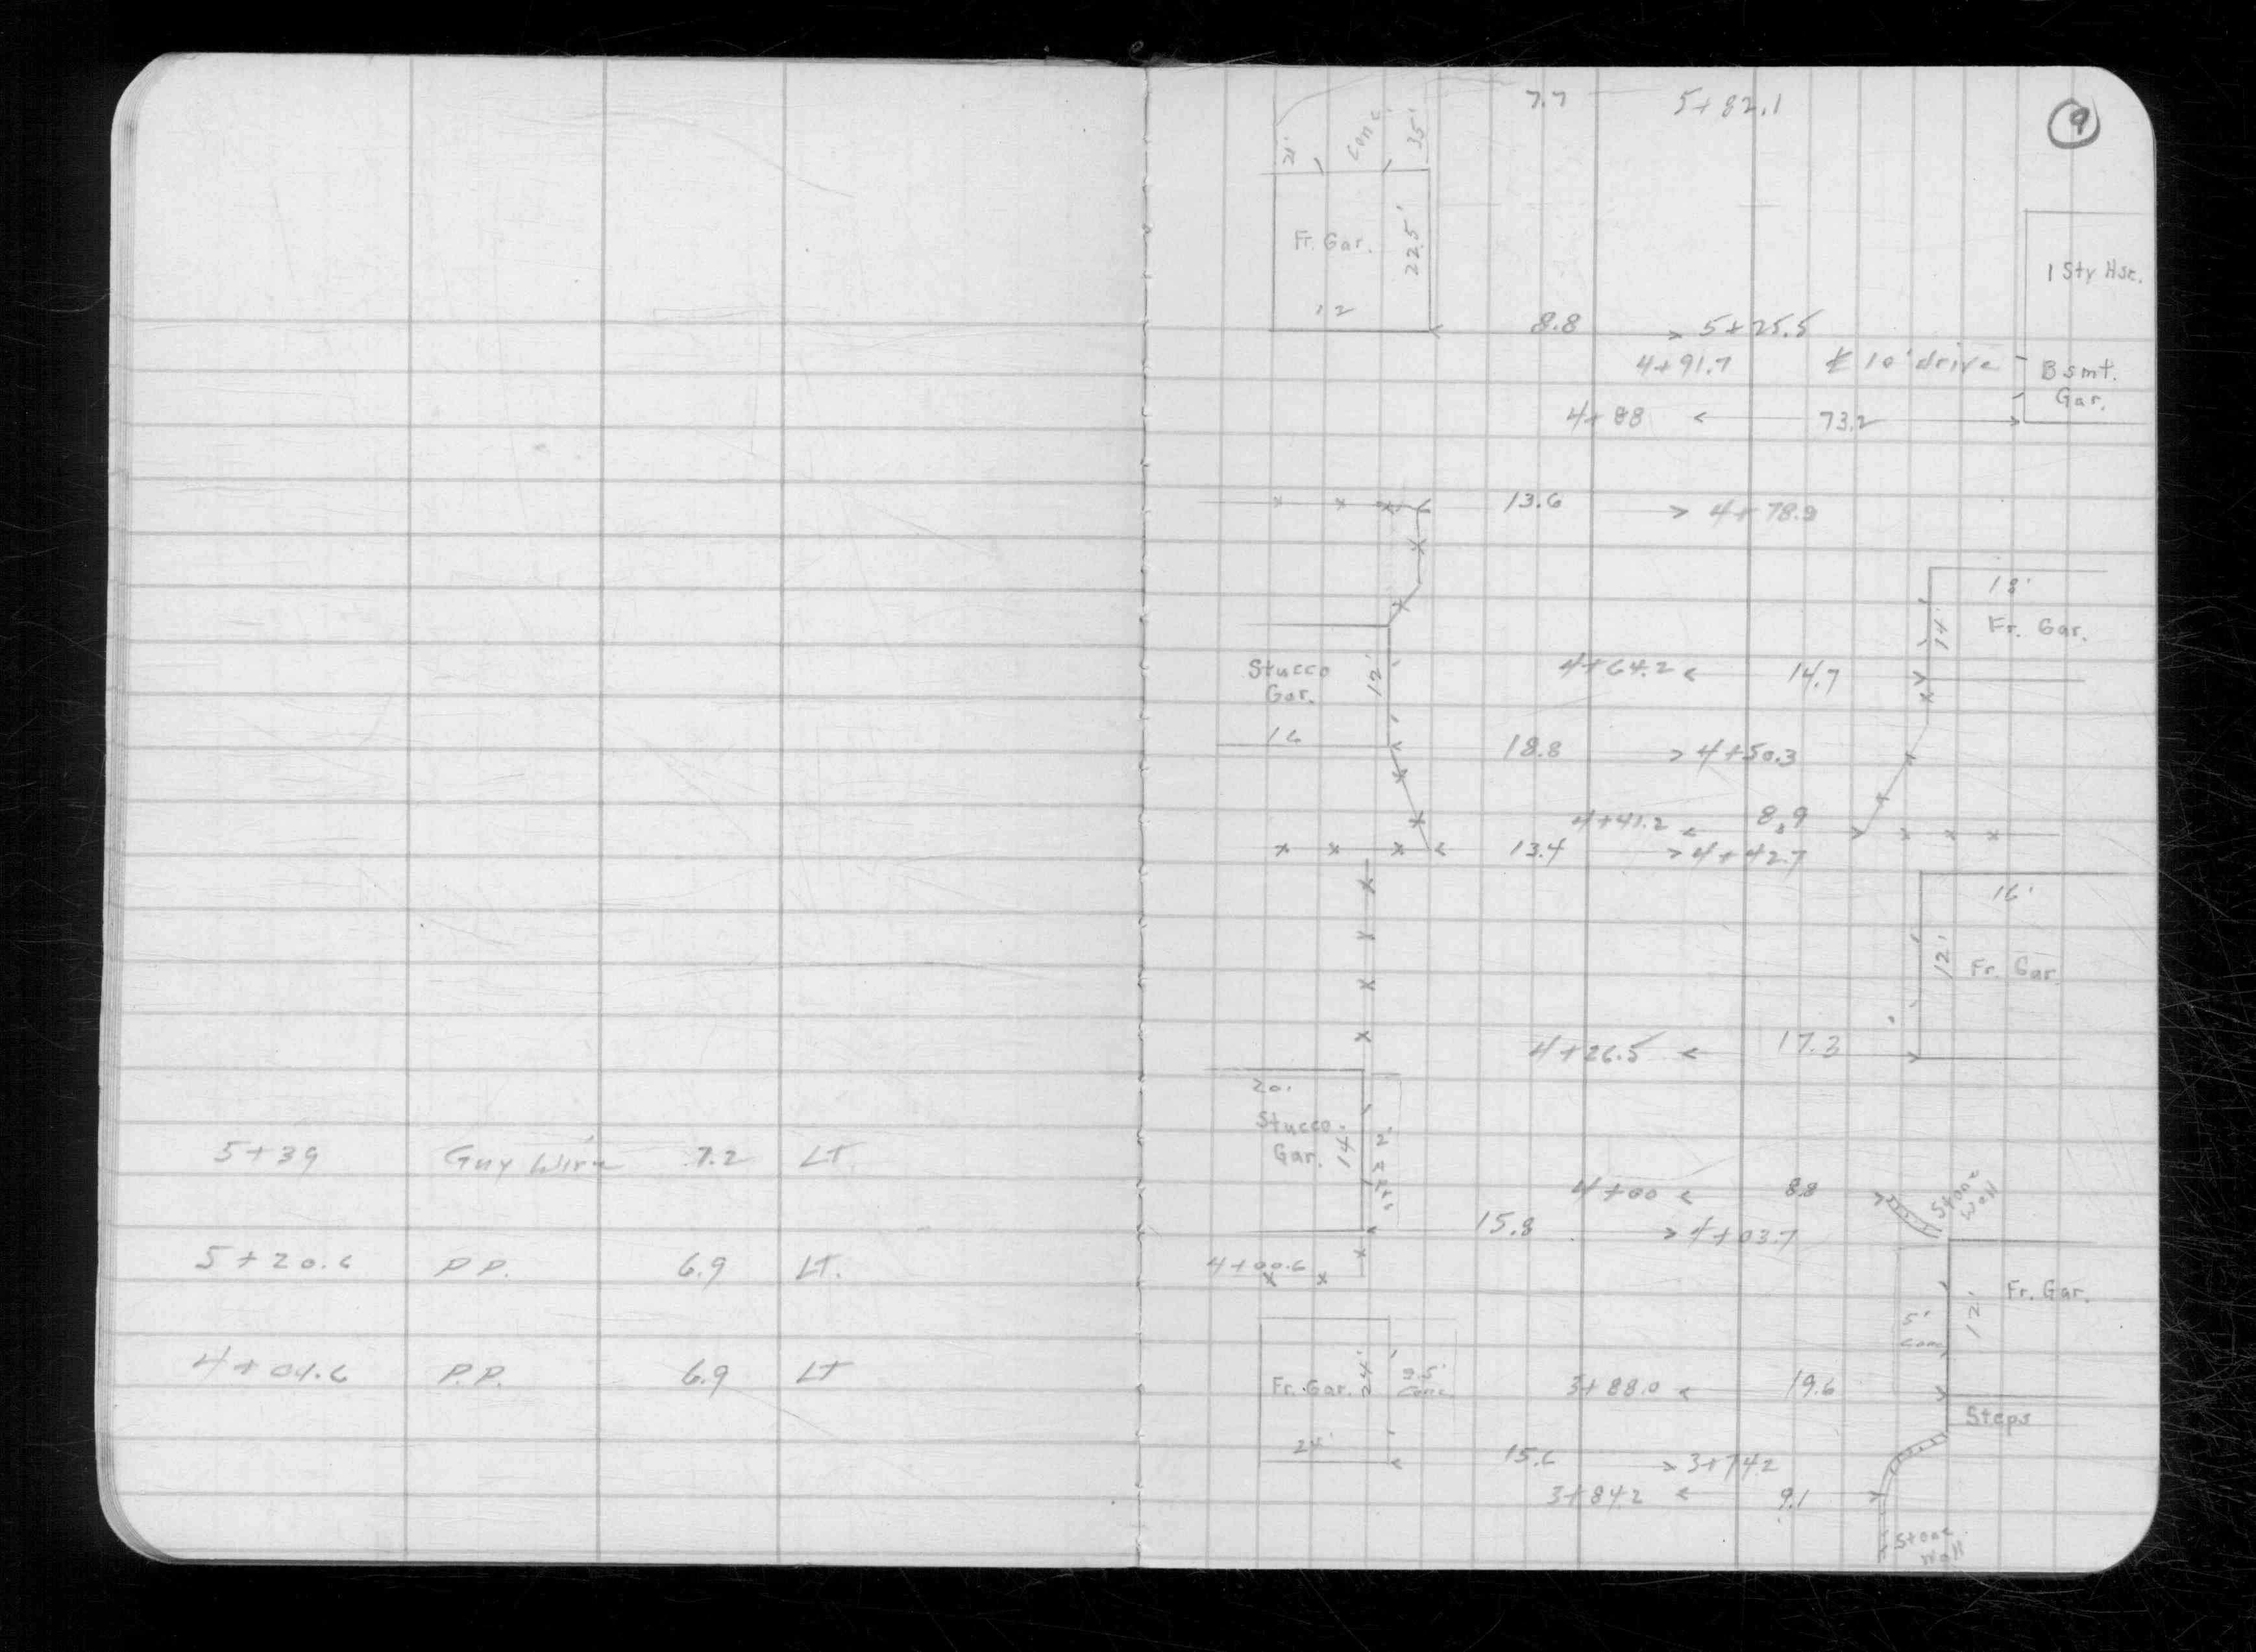 5+39 Guy Wire 7.2 LT.
5+20.6 P.P. 6.9 LT.
4+04.6 P.P. 6.9 LT
9
7.7 5+82.1
21' Conc 35'
Fr. Gar. 22.5'
12
1 Sty Hse.
8.8 5+25.5
4+91.7 ℄ 10' drive
Bsmt.
Gar.
4+88 73.2
13.6 4+78.9
18'
14' Fr. Gar.
Stucco
Gar. 12'
16
4+64.2 14.7
18.8 4+50.3
4+41.2 8.9
13.4 4+42.7
16'
12' Fr. Gar
4+26.5 17.3
20'
Stucco
Gar. 14' 2'
4+00 8.8 Stone
Wall
15.8 4+03.7
4+00.6
Fr. Gar.
12'
5'
Conc
Fr. Gar. 24' 9.5'
Conc
24'
3+88.0 19.6
Steps
15.6 3+74.2
3+84.2 9.1
Stone
Wall